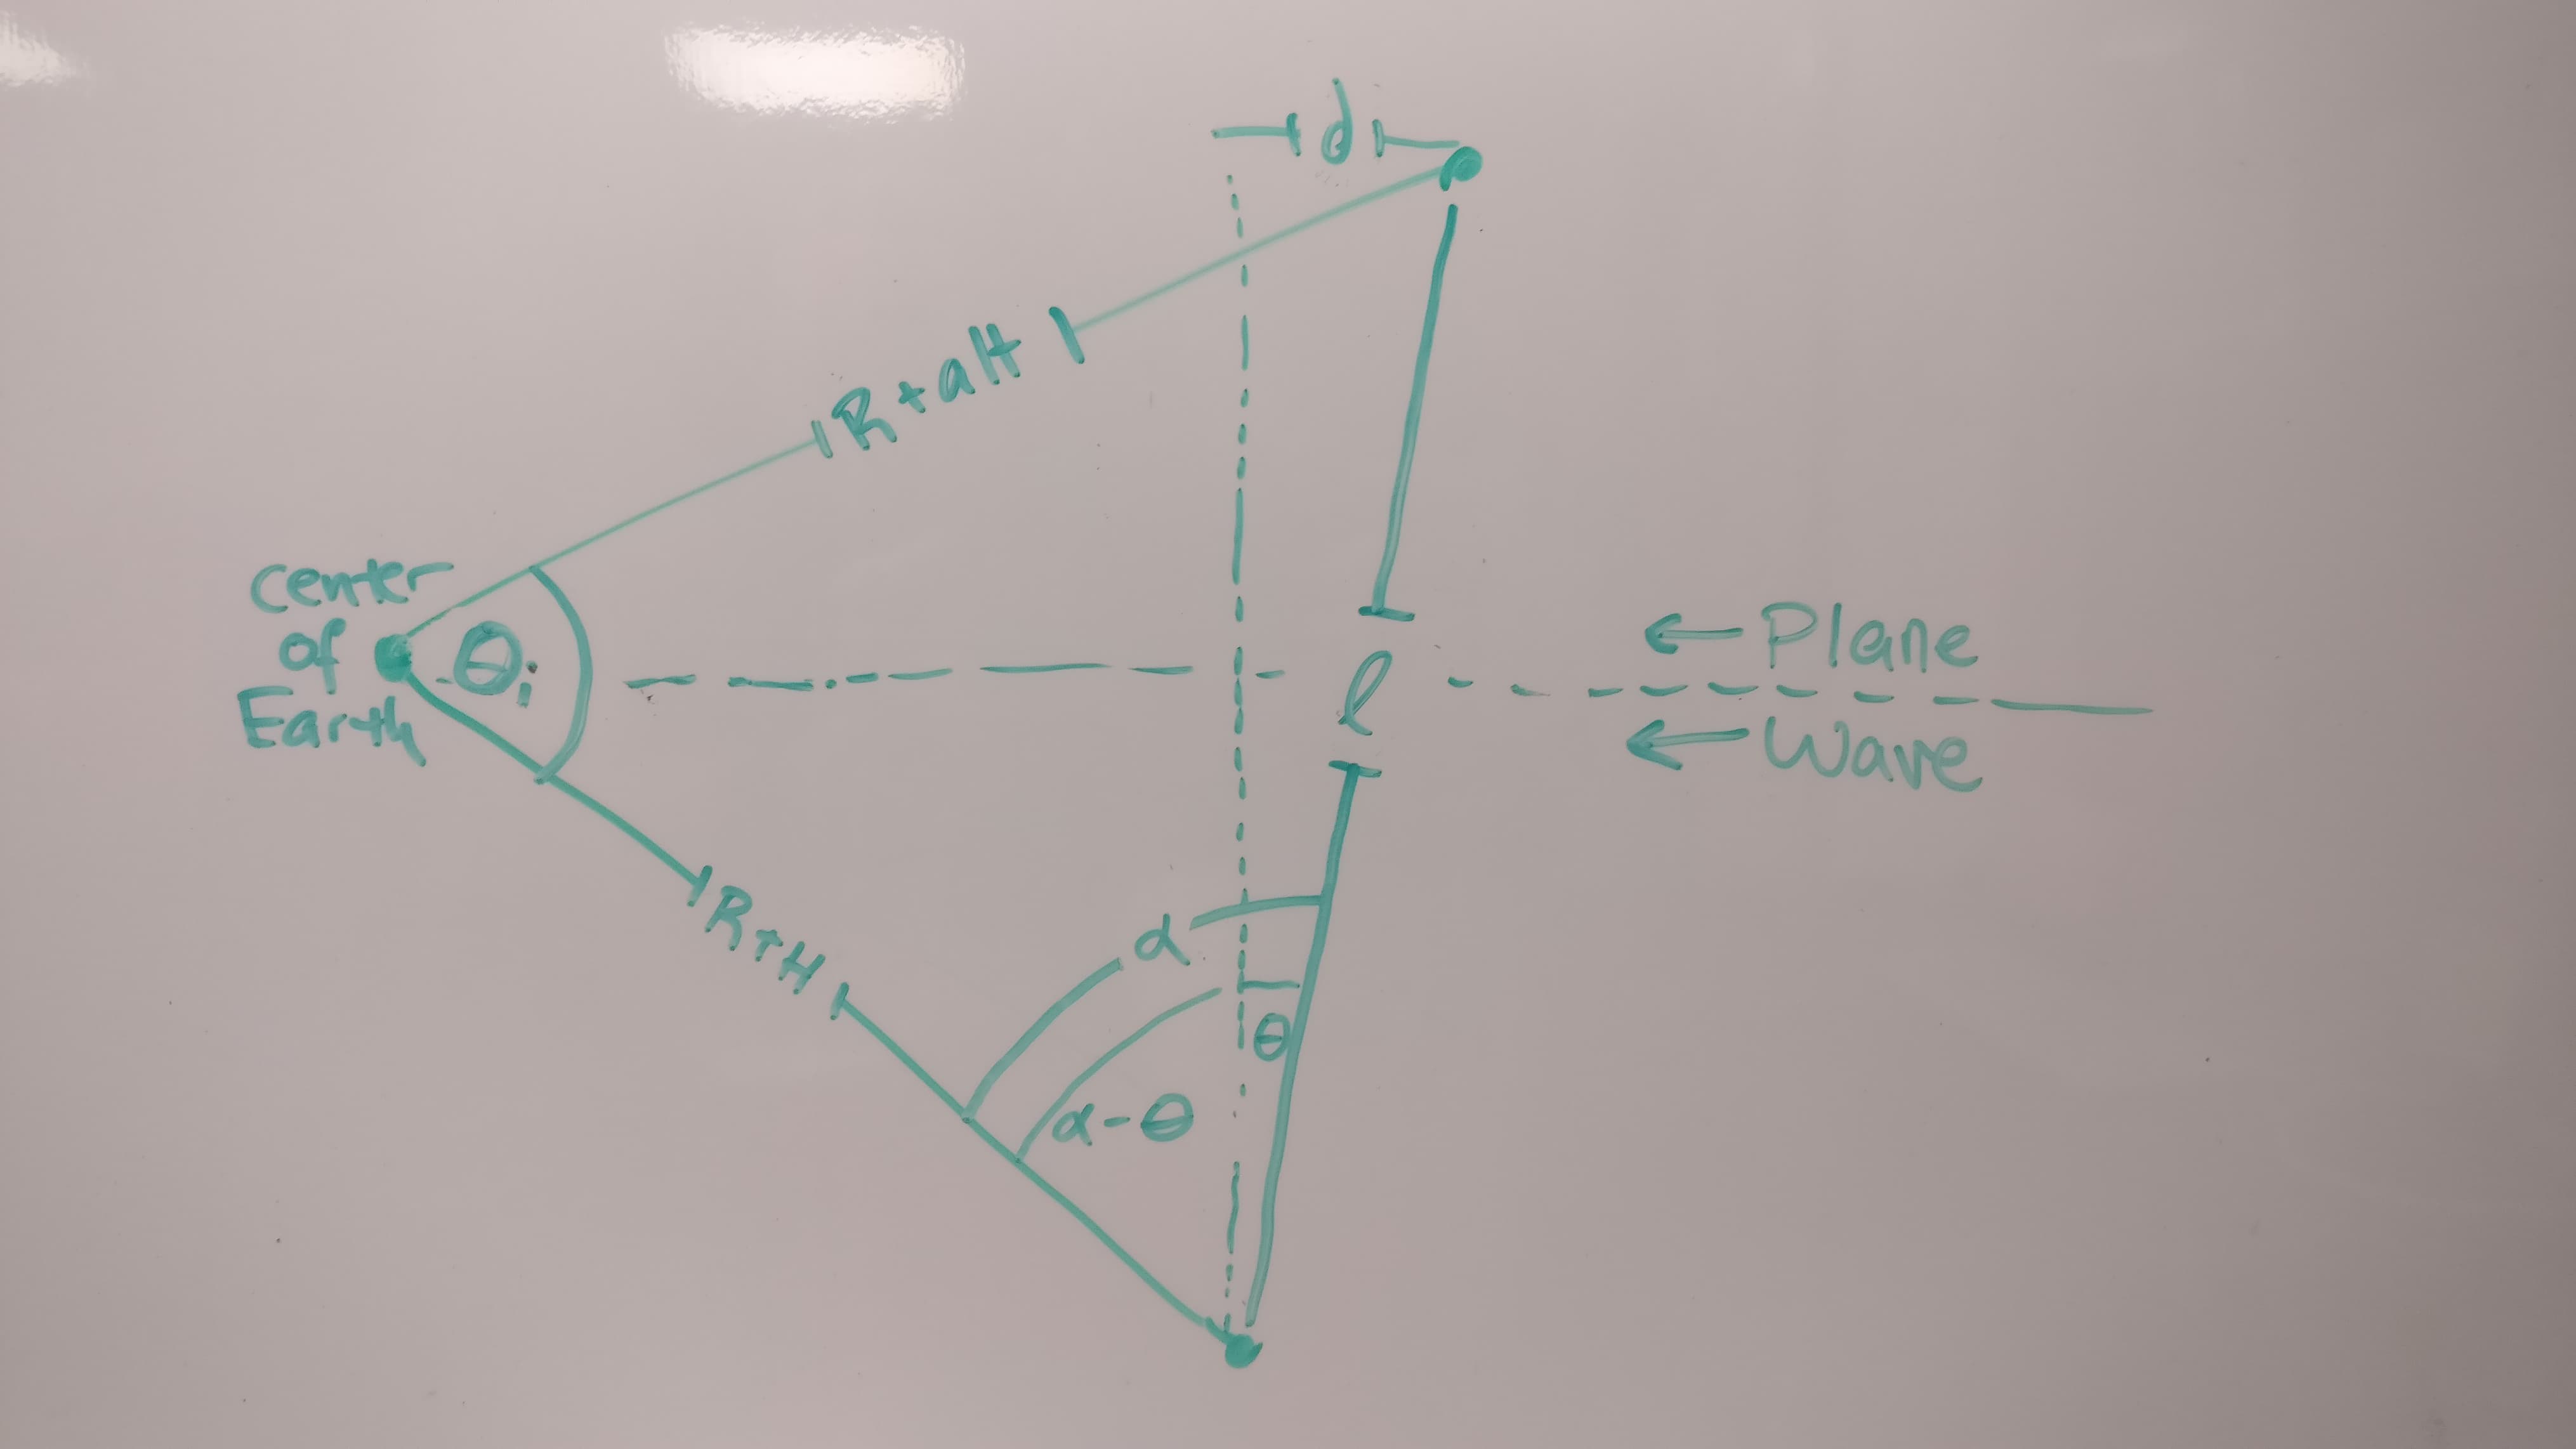 d
R+alt
center
of
Earth
θi
← Plane
ℓ
← Wave
R+H
α
θ
α-θ